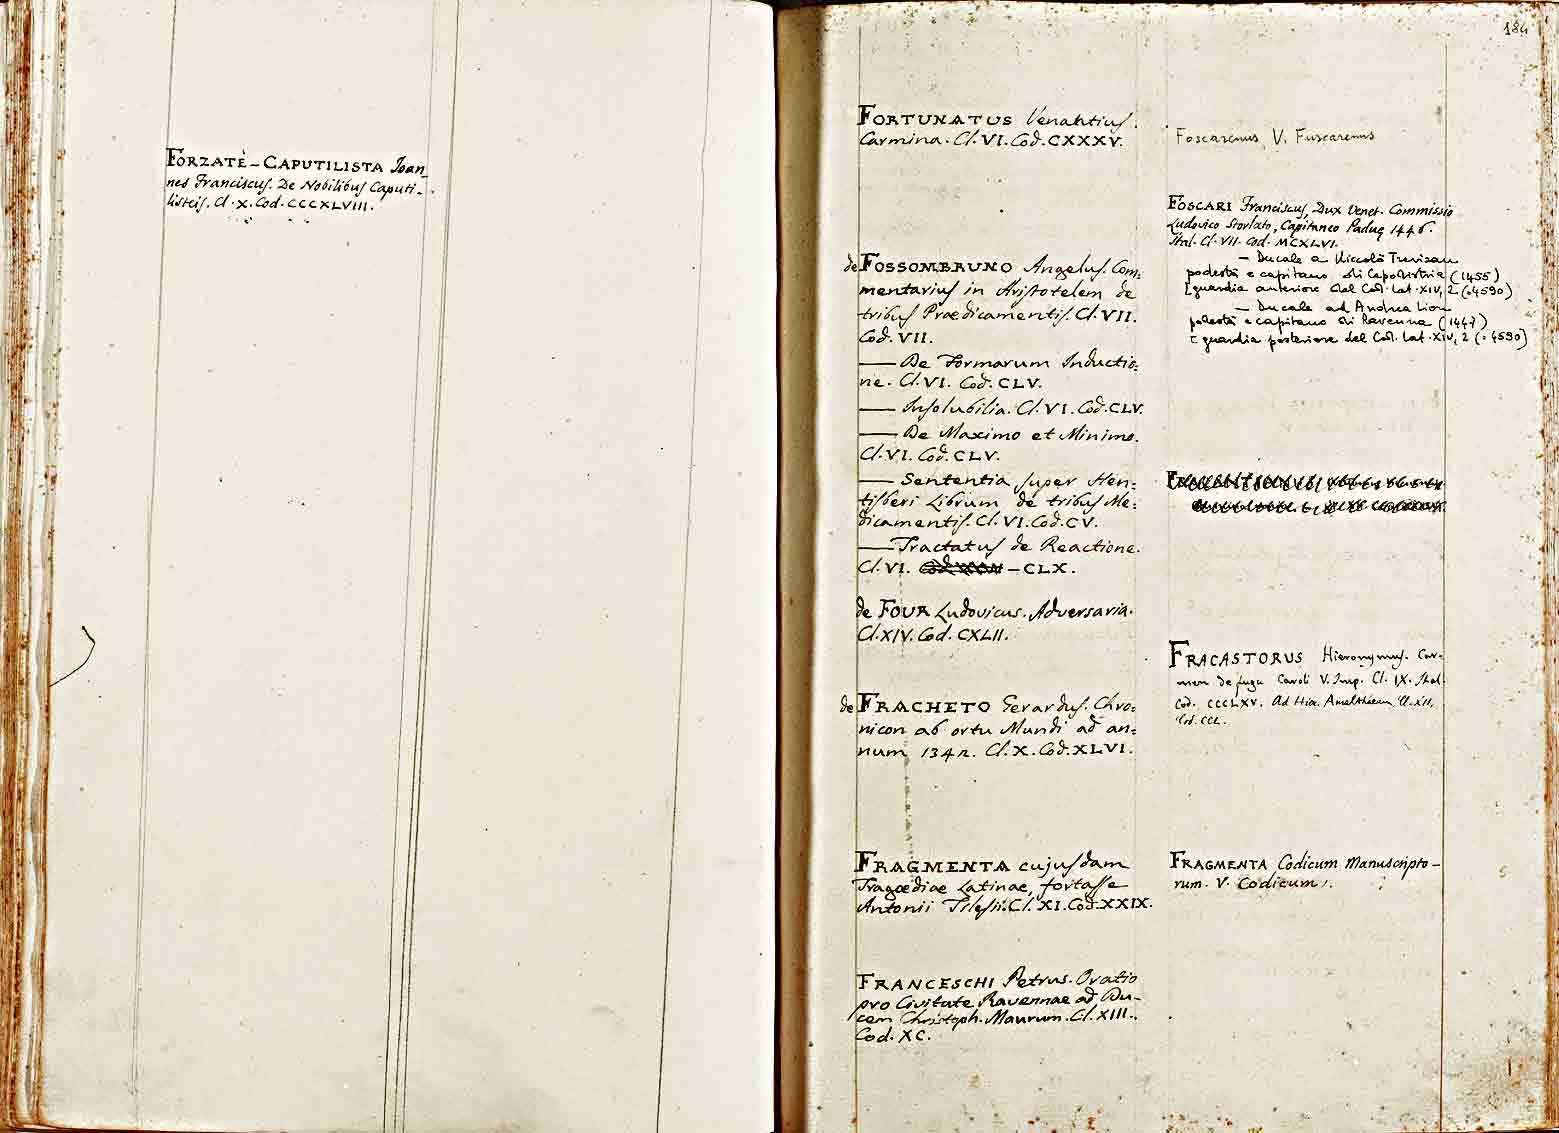 FORZATÈ-CAPUTILISTA Joan_
nes Franciscus. De Nobilibus Caputi-
listeis. Cl. X. Cod. CCCXLVIII.
184
FORTUNATUS Venantius.
Carmina. Cl. VI. Cod. CXXXV.
de FOSSOMBRUNO Angelus. Com=
mentarius in Aristotelem de
tribus Praedicamentis. Cl. VII.
Cod. VII.
— De Formarum Inductio=
ne. Cl. VI. Cod. CLV.
— Insolubilia. Cl. VI. Cod. CLV.
— De Maximo et Minimo.
Cl. VI. Cod. CLV.
— Sententia super Hen=
tisberi Librum de tribus Me=
dicamentis. Cl. VI. Cod. CV.
— Tractatus de Reactione.
Cl. VI. — CLX.
de FOUR Ludovicus. Adversaria.
Cl. XIV. Cod. CXLII.
de FRACHETO Gerardus. Chro=
nicon ab ortu Mundi ad an=
num 1342. Cl. X. Cod. XLVI.
FRAGMENTA cujusdam
Tragoediae Latinae, fortasse
Antonii Tilesii. Cl. XI. Cod. XXIX.
FRANCESCHI Petrus. Oratio
pro Civitate Ravennae ad Du-
cem Christoph. Maurum. Cl. XIII.
Cod. XC.
Foscarenus V. Fuscarenus
FOSCARI Franciscus, Dux Venet. Commissio
Ludovico Storlato, Capitaneo Paduę 1446.
Ital. Cl. VII. Cod. MCXLVI.
— Ducale a Niccolò Trevisan
podestà e capitano di Capodistria (1455)
[guardia anteriore del Cod. Lat. XIV, 2 (=4590)
— Ducale ad Andrea Lion
podestà e capitano di Ravenna (1447)
[guardia posteriore del Cod. Lat. XIV, 2 (=4590)
FRACASTORUS Hieronymus. Car-
men de fuga Caroli V. Imp. Cl. IX. Ital.
Cod. CCCLXV. Ad Hier. Amaltheum Cl. XII.
Cod. CCL.
FRAGMENTA Codicum Manuscripto-
rum. V. Codicum.